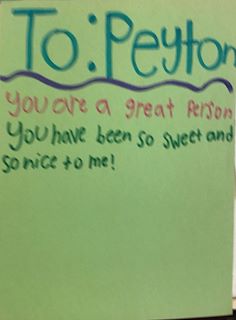 To: Peyton
You are a great Person
You have been so sweet and
so nice to me!